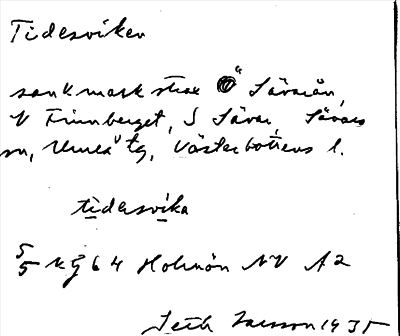 Tidesviken
sankmark strax Ö Sävarån,
V Finnberget, S Sävar, Sävars
sn, Umeå tg, Västerbottens l.
tidesvika
5/5 kg 64 Holmön NV A2
Larsson 1935